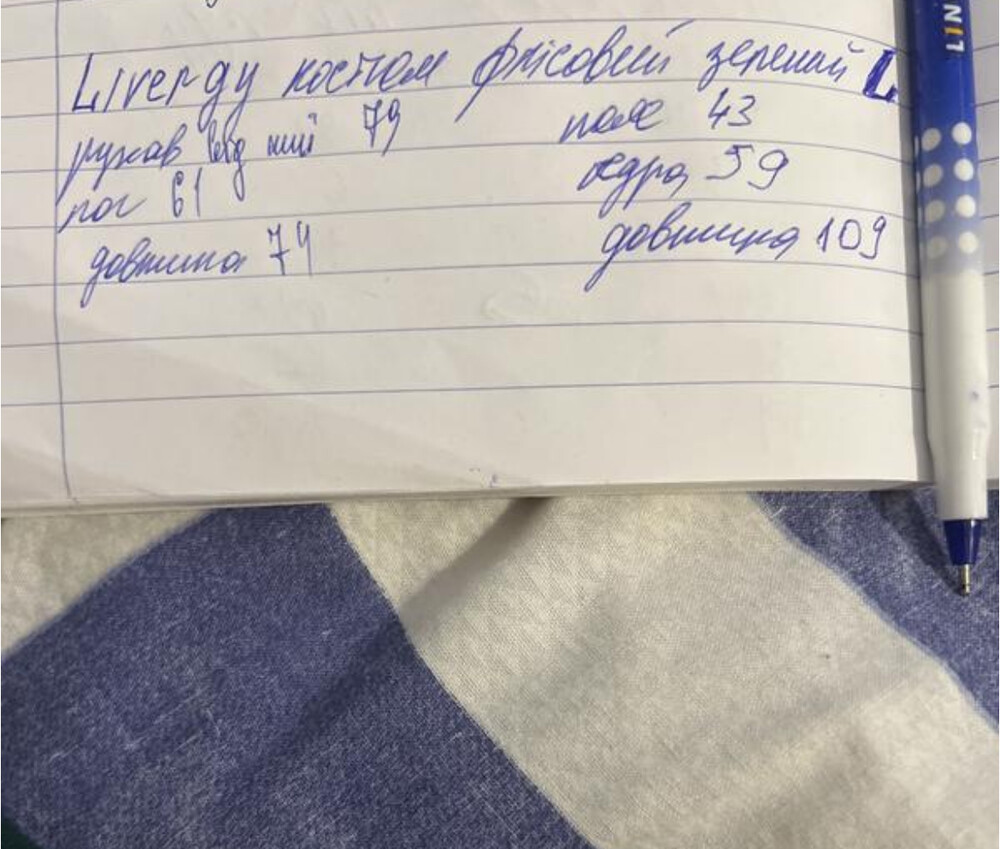 Livergy костюм флісовий зелений L
рукав від шиї 79 пояс 43
пог 61 бедра 59
довжина 74 довжина 109
LIN